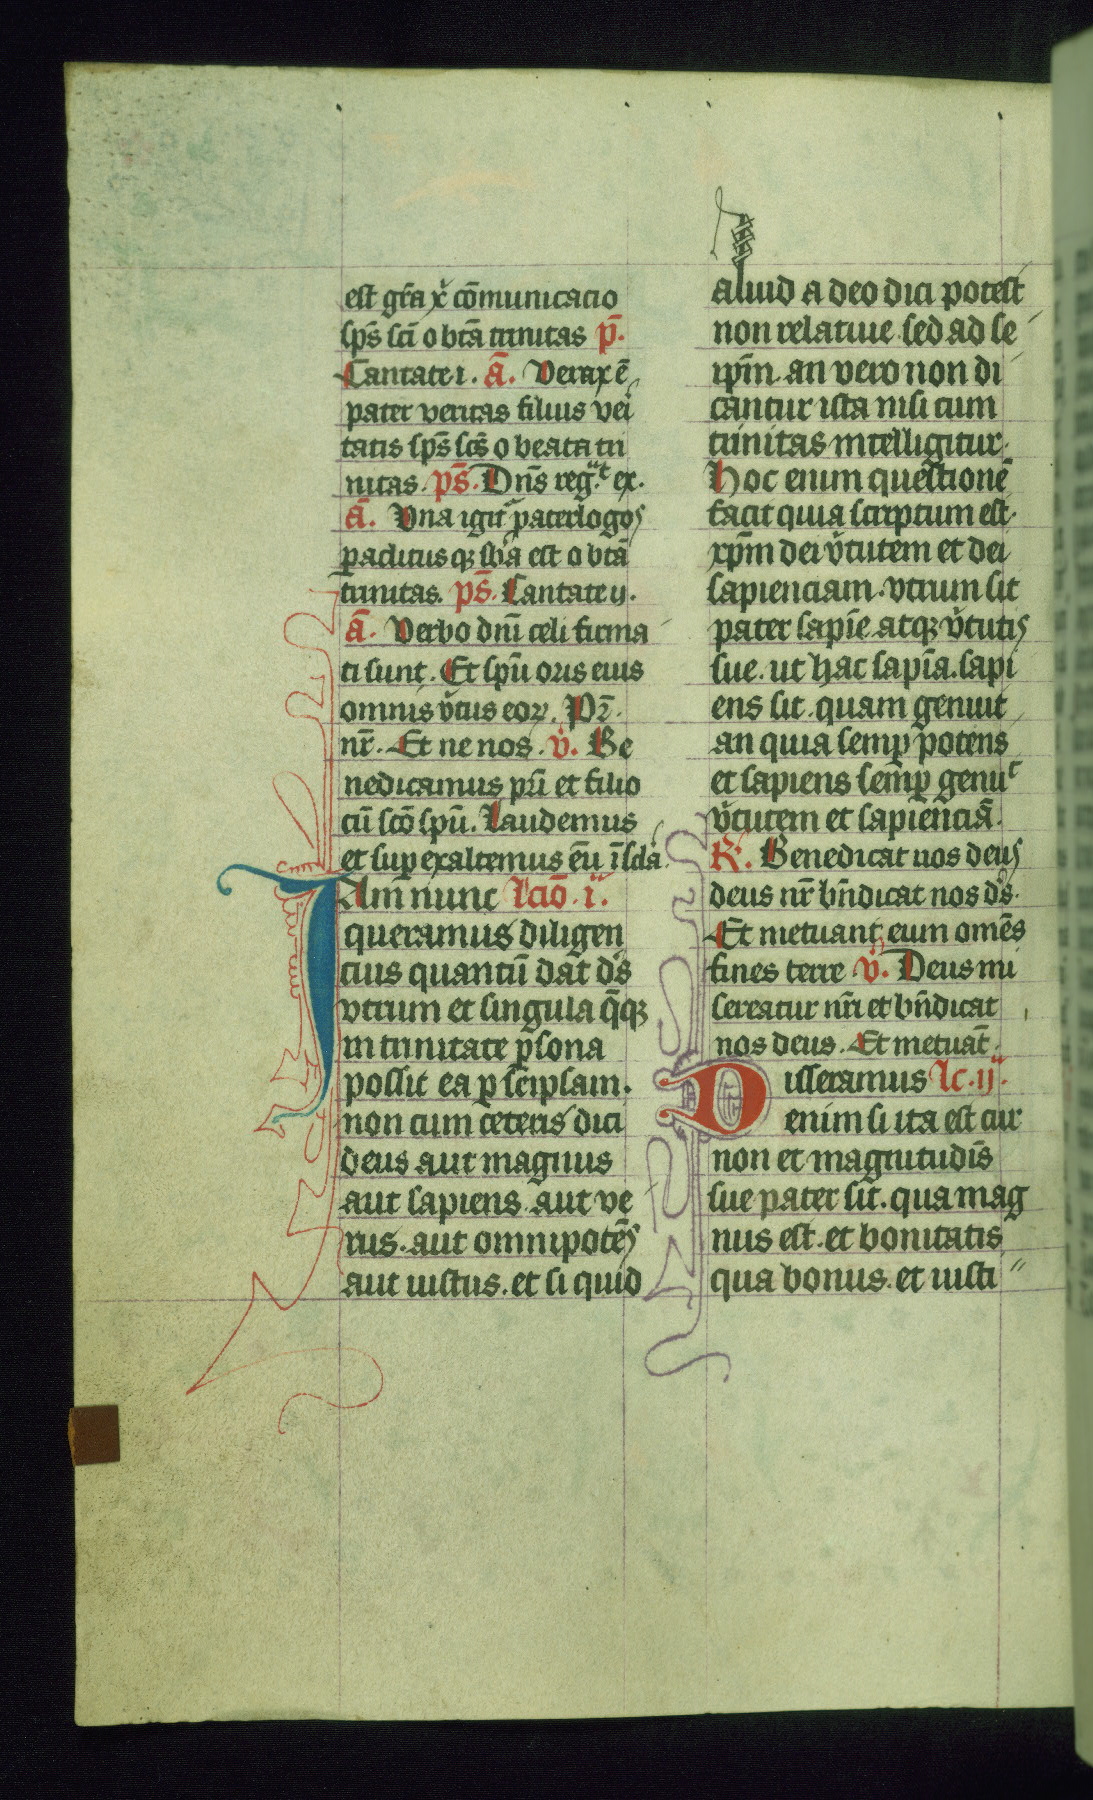 est gr̄a xͥ cōmunicacio
sp̄s sc̄i o btā trinitas p̄.
Cantate i. ā. Verax ē
pater veritas filius veri
tatis sp̄s sc̄s o beata tri
nitas. ps̄. Dn̄s reg. ex.
ā. Vna igit᷑ pater logos
paclitusqꝫ sb̄a est o btā
trinitas. ps̄. Cantate ij.
ā. Verbo dn̄i celi firma
ti sunt. Et sp̄u oris eius
omnis v̄tus eoꝝ. Pr̄.
nr̄. Et ne nos. v̄. Be
nedicamus pr̄i et filio
cū sc̄o sp̄u. Laudemus
et suꝑexaltemus eū ī scl̄a
Iam nunc lc̄io. i.ᵃ
queramus diligen
cius quantū dat d̄s
vtrum et singula q̄qꝫ
in trinitate ꝑsona
possit ea ꝑ seipsam.
non cum ceteris dici
deus aut magnus
aut sapiens aut ve
rus. aut omnipotēs
aut iustus. et si quid
aliud a deo dici potest
non relatiue sed ad se
ip̄m. an vero non di
cantur ista nisi cum
trinitas intelligitur.
Hoc enim questionē
facit quia scriptum est.
xp̄m dei v̄tutem et dei
sapienciam. vtrum sit
pater sapīe atqꝫ v̄tutis
sue. ut hac sapīa. sapi
ens sit. quam genuit
an quia semꝑ potens
et sapiens semꝑ genuͭ
v̄tutem et sapienciā.
R̄. Benedicat nos deus
deus nr̄ bn̄dicat nos d̄s.
Et metuant eum omēs
fines terre v̄. Deus mi
sereatur nr̄i et bn̄dicat
nos deus. Et metuāt.
Disseramus lc. ij.ᵃ
enim si ita est cur
non et magnitudīs
sue pater sit. qua mag
nus est. et bonitatis
qua bonus. et iusti